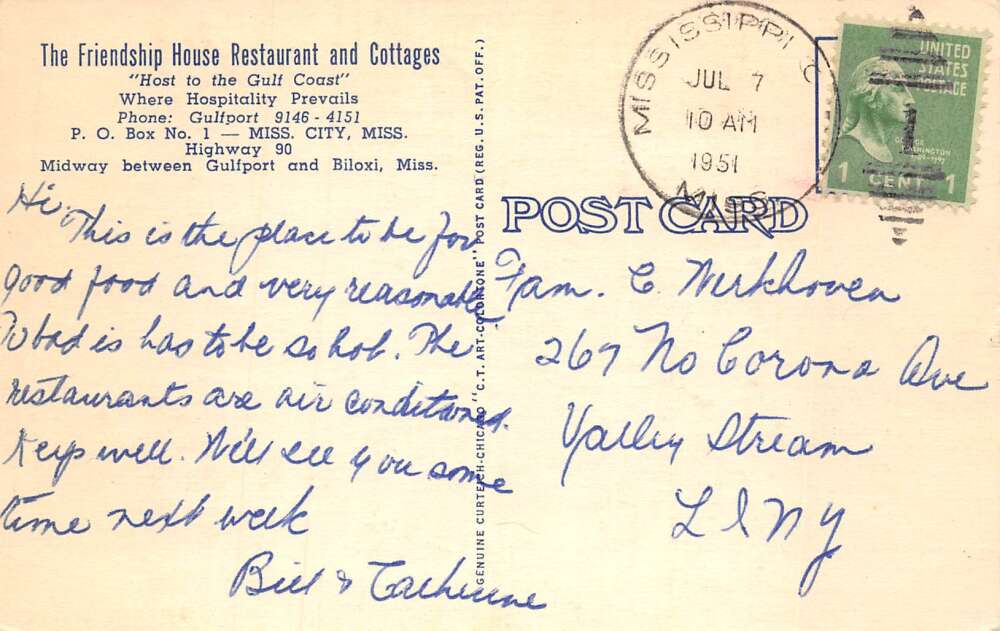 The Friendship House Restaurant and Cottages
"Host to the Gulf Coast"
Where Hospitality Prevails
Phone: Gulfport 9146 - 4151
P. O. Box No. 1 — MISS. CITY, MISS.
Highway 90
Midway between Gulfport and Biloxi, Miss.
Hi,
This is the place to be for
good food and very reasonable.
To bad is has to be so hot. The
restaurants are air conditioned.
Keep well. Will see you some
time next week
Bill & Catherine
GENUINE CURTEICH-CHICAGO "C.T. ART-COLORTONE" POST CARD (REG. U.S. PAT. OFF.)
MISSISSIPPI C
JUL 7
10 AM
1951
MISS
UNITED
STATES
POSTAGE
GEORGE
WASHINGTON
1 CENT 1
POST CARD
Fam. C. Werkhoven
267 No Corona Ave
Valley Stream
L I N Y